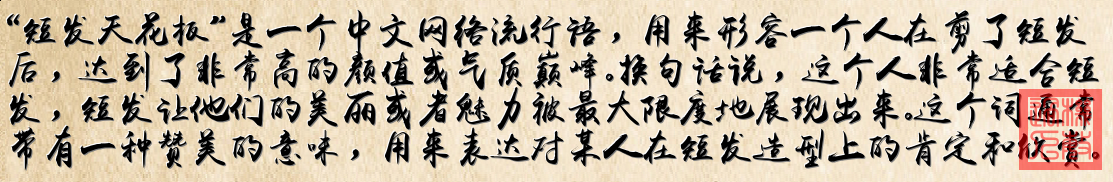 “短发天花板”是一个中文网络流行语，用来形容一个人在剪了短发
后，达到了非常高的颜值或气质巅峰。换句话说，这个人非常适合短
发，短发让他们的美丽或者魅力被最大限度地展现出来。这个词通常
带有一种赞美的意味，用来表达对某人在短发造型上的肯定和欣赏。